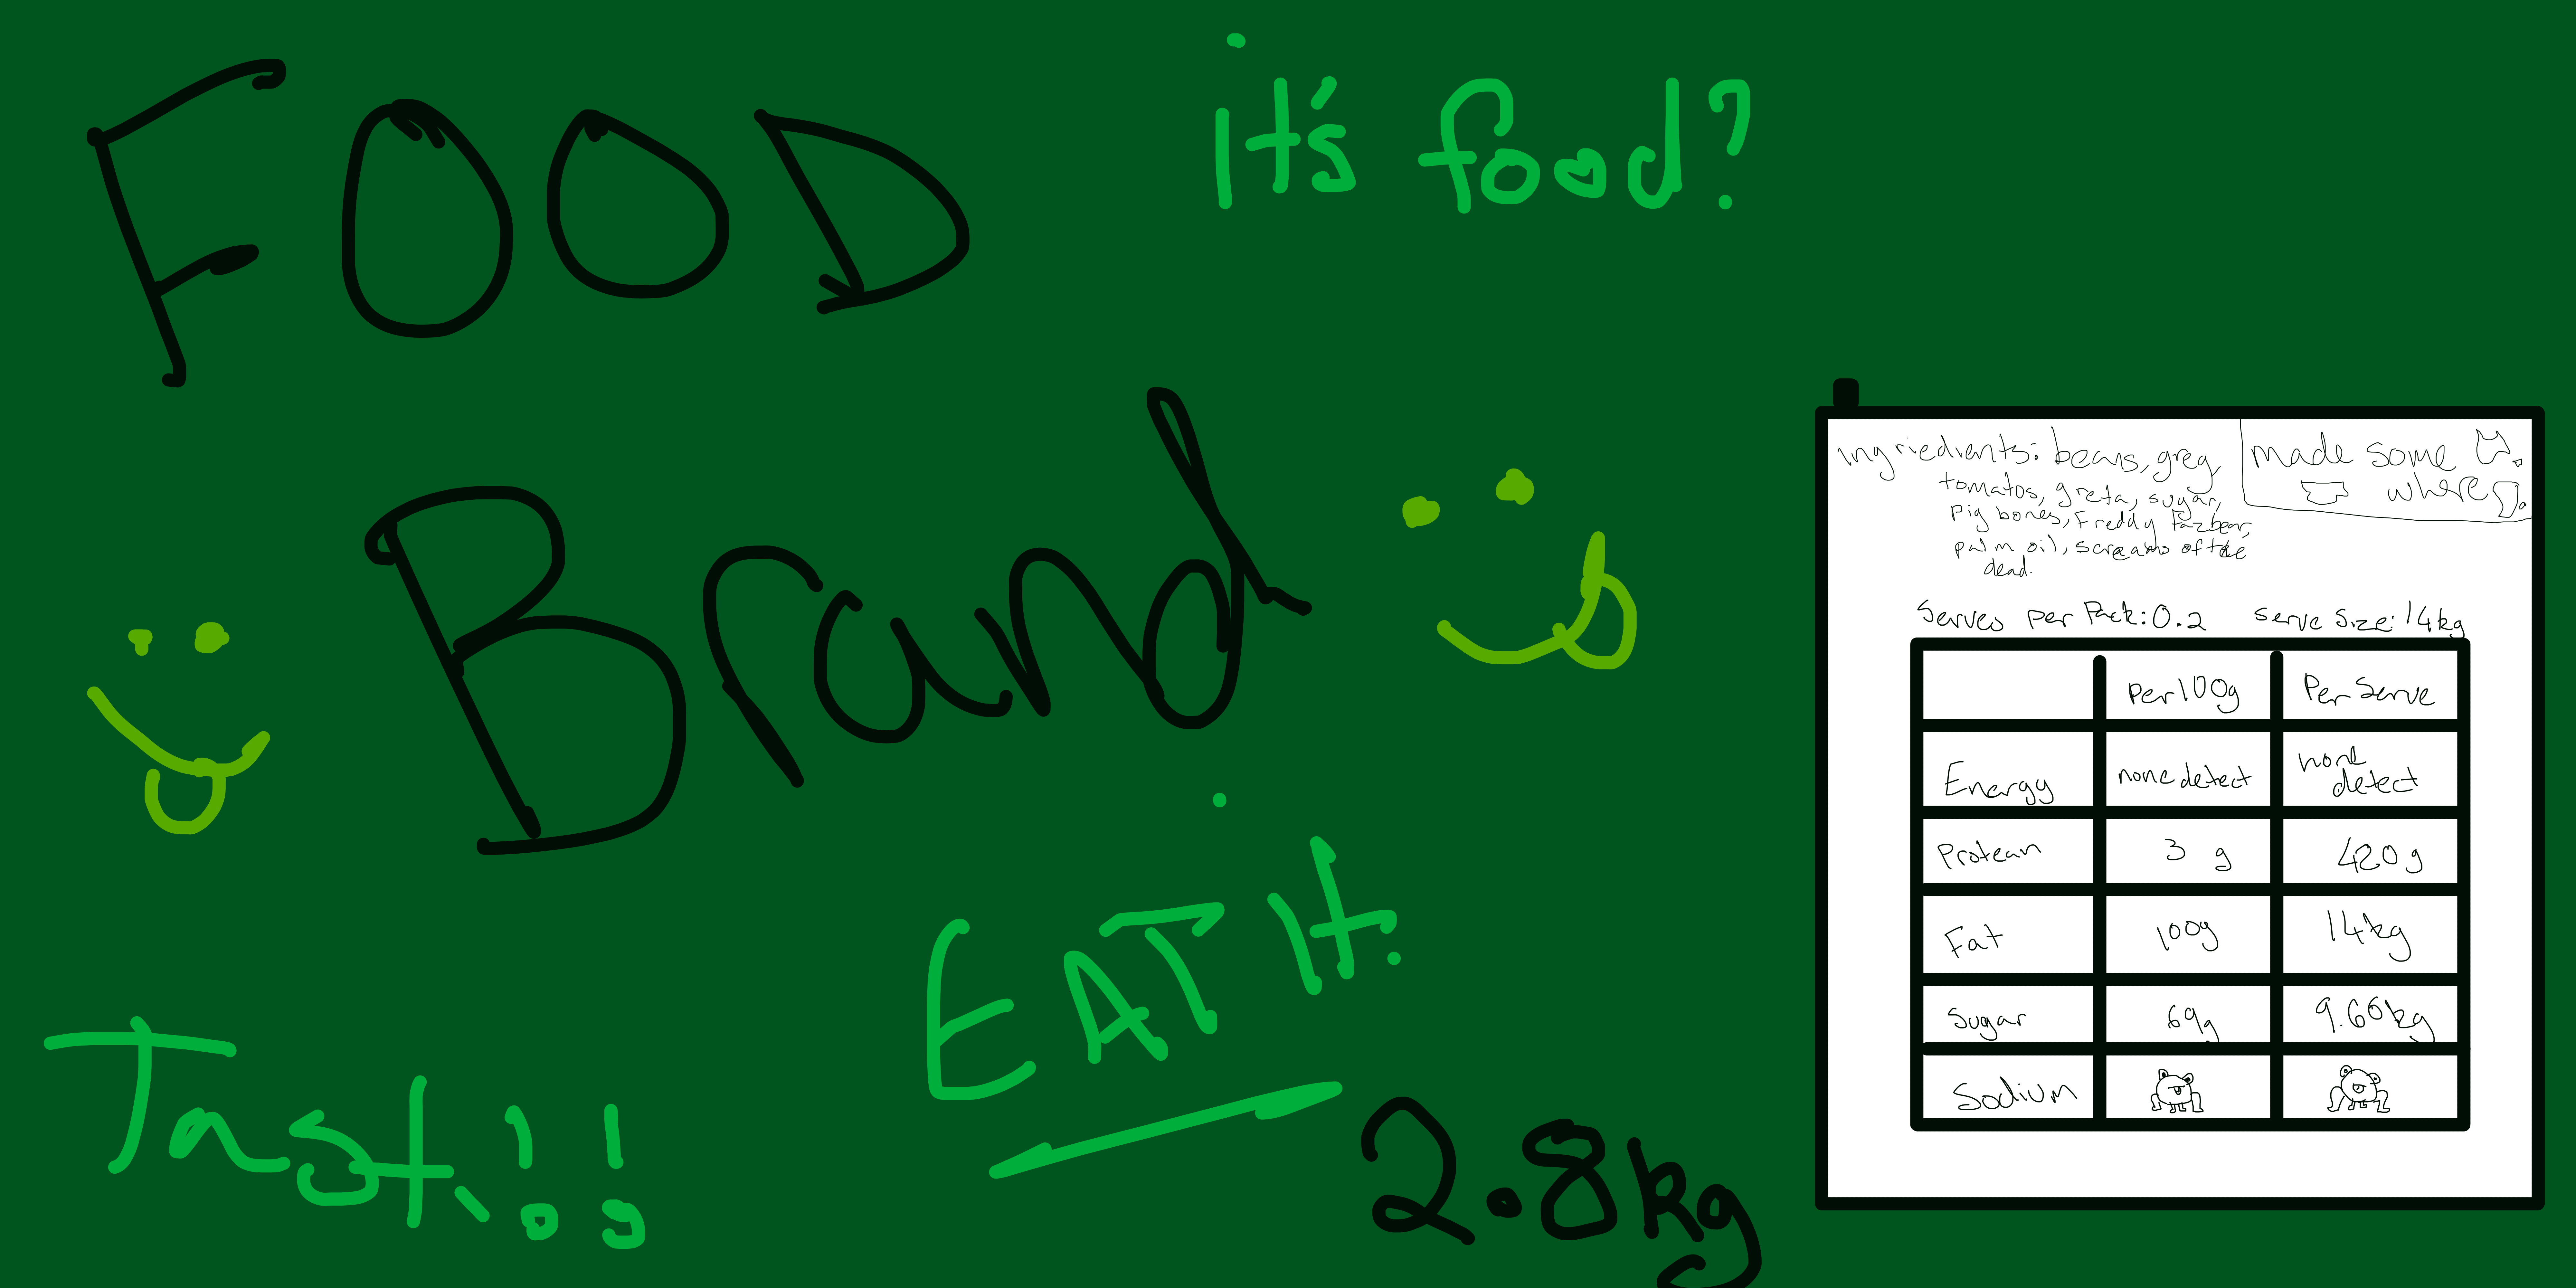 FOOD
it's food?
Brand
EAT it.
Tast.!!
2.8kg
ingriedients: beans, greg,
tomatos, greta, sugar,
pig bones, Freddy Fazbear,
palm oil, screams of the
dead.
made some
where
Serves per Pack: 0.2 serve size: 14kg
Per 100g Per Serve
Energy none detect none detect
Protean 3 g 420g
Fat 100g 14kg
Sugar 69g 9.66kg
Sodium